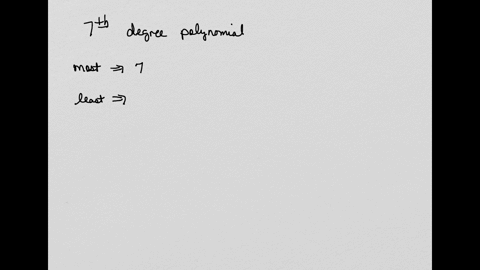 7th degree polynomial
most ⇒ 7
least ⇒